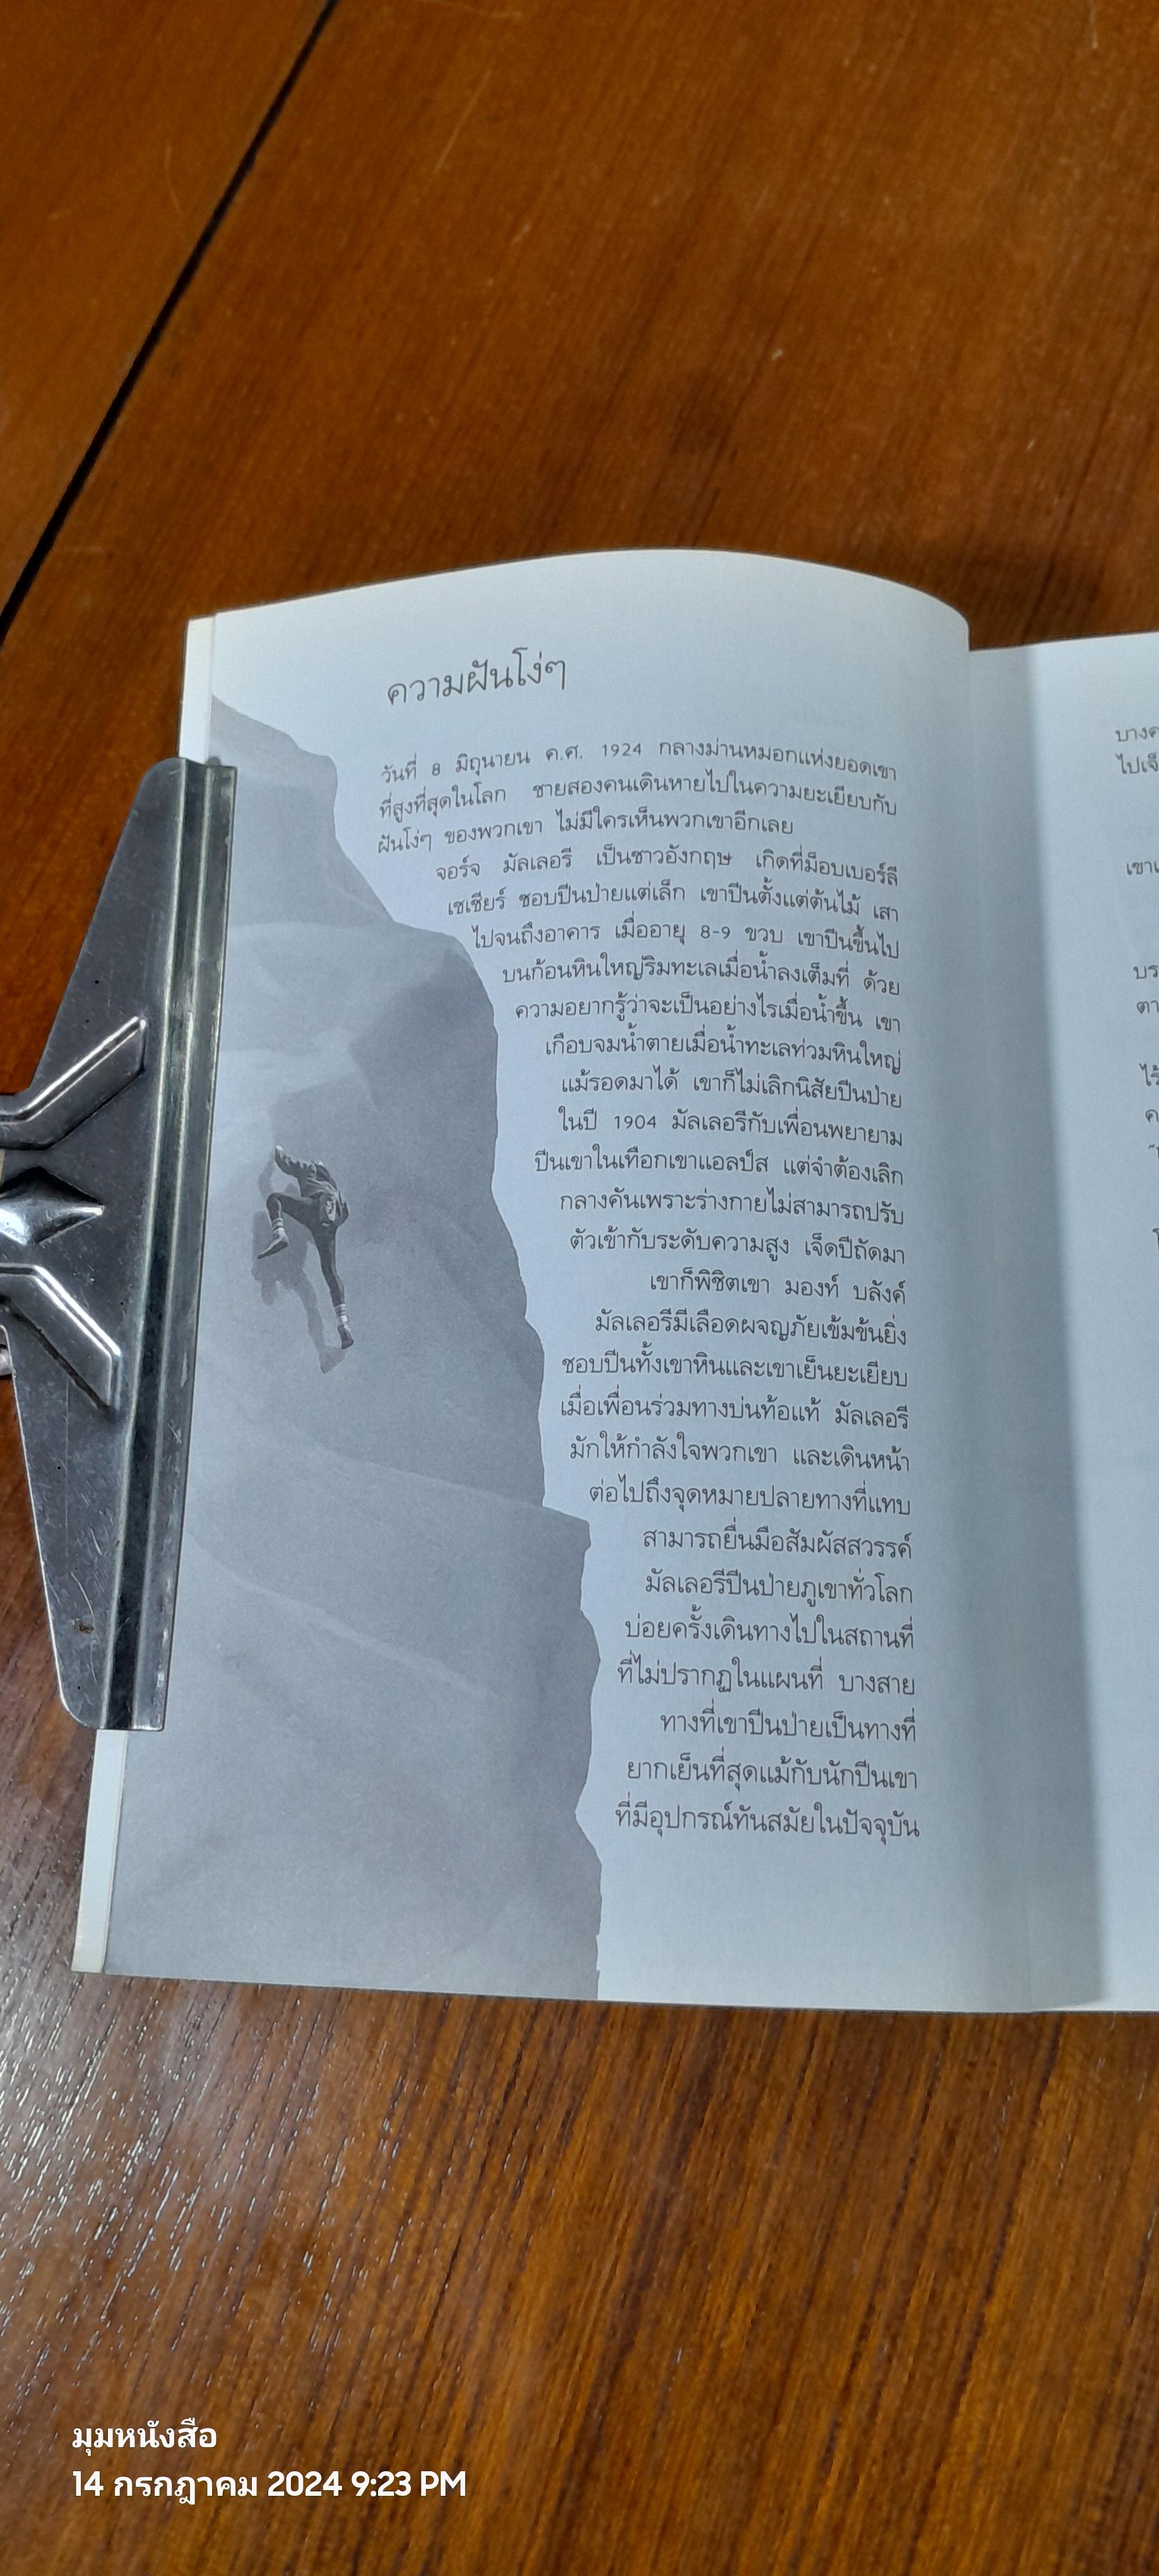 ความฝันโง่ๆ
วันที่ 8 มิถุนายน ค.ศ. 1924 กลางม่านหมอกแห่งยอดเขา
ที่สูงที่สุดในโลก ชายสองคนเดินหายไปในความยะเยียบกับ
ฝันโง่ๆ ของพวกเขา ไม่มีใครเห็นพวกเขาอีกเลย
จอร์จ มัลเลอรี เป็นชาวอังกฤษ เกิดที่ม็อบเบอร์ลี
เชเชียร์ ชอบปีนป่ายแต่เล็ก เขาปีนตั้งแต่ต้นไม้ เสา
ไปจนถึงอาคาร เมื่ออายุ 8-9 ขวบ เขาปีนขึ้นไป
บนก้อนหินใหญ่ริมทะเลเมื่อน้ำลงเต็มที่ ด้วย
ความอยากรู้ว่าจะเป็นอย่างไรเมื่อน้ำขึ้น เขา
เกือบจมน้ำตายเมื่อน้ำทะเลท่วมหินใหญ่
แม้รอดมาได้ เขาก็ไม่เลิกนิสัยปีนป่าย
ในปี 1904 มัลเลอรีกับเพื่อนพยายาม
ปีนเขาในเทือกเขาแอลป์ส แต่จำต้องเลิก
กลางคันเพราะร่างกายไม่สามารถปรับ
ตัวเข้ากับระดับความสูง เจ็ดปีถัดมา
เขาก็พิชิตเขา มองท์ บลังค์
มัลเลอรีมีเลือดผจญภัยเข้มข้นยิ่ง
ชอบปีนทั้งเขาหินและเขาเย็นยะเยียบ
เมื่อเพื่อนร่วมทางบ่นท้อแท้ มัลเลอรี
มักให้กำลังใจพวกเขา และเดินหน้า
ต่อไปถึงจุดหมายปลายทางที่แทบ
สามารถยื่นมือสัมผัสสวรรค์
มัลเลอรีปีนป่ายภูเขาทั่วโลก
บ่อยครั้งเดินทางไปในสถานที่
ที่ไม่ปรากฏในแผนที่ บางสาย
ทางที่เขาปีนป่ายเป็นทางที่
ยากเย็นที่สุดแม้กับนักปีนเขา
ที่มีอุปกรณ์ทันสมัยในปัจจุบัน
มุมหนังสือ
14 กรกฎาคม 2024 9:23 PM